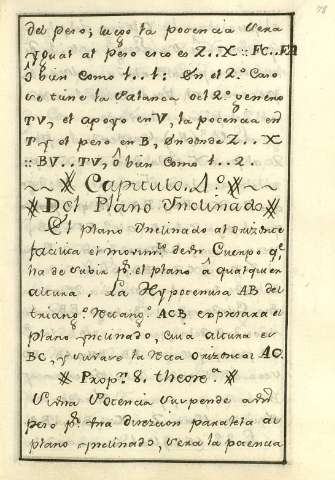 del peso; luego la potencia sera
ygual al peso esto es Z..X :: FC..FA
ô bien como 1..1: En el 2.º Caso
se tiene la Palanca del 2.º genero
TV, el apoyo en V, la potencia en
T y el peso en B, en donde Z..X
:: BV..TV, ô bien como 1..2.
Capitulo 4.º
Del Plano Inclinado
El plano Inclinado al orizonte
facilita el movim.to de un Cuerpo q.e
ha de subir p.r el plano â qualquier
altura. La Hypotenusa AB del
triang.º Rectang.º ACB expresara el
plano ynclinado, cuia altura es
BC, y su vase la Recta Orizontal AC.
Prop.n 8. theore.a
Si una Potencia suspende a un
peso p.r una direzion paralela al
plano ynclinado, sera la potencia